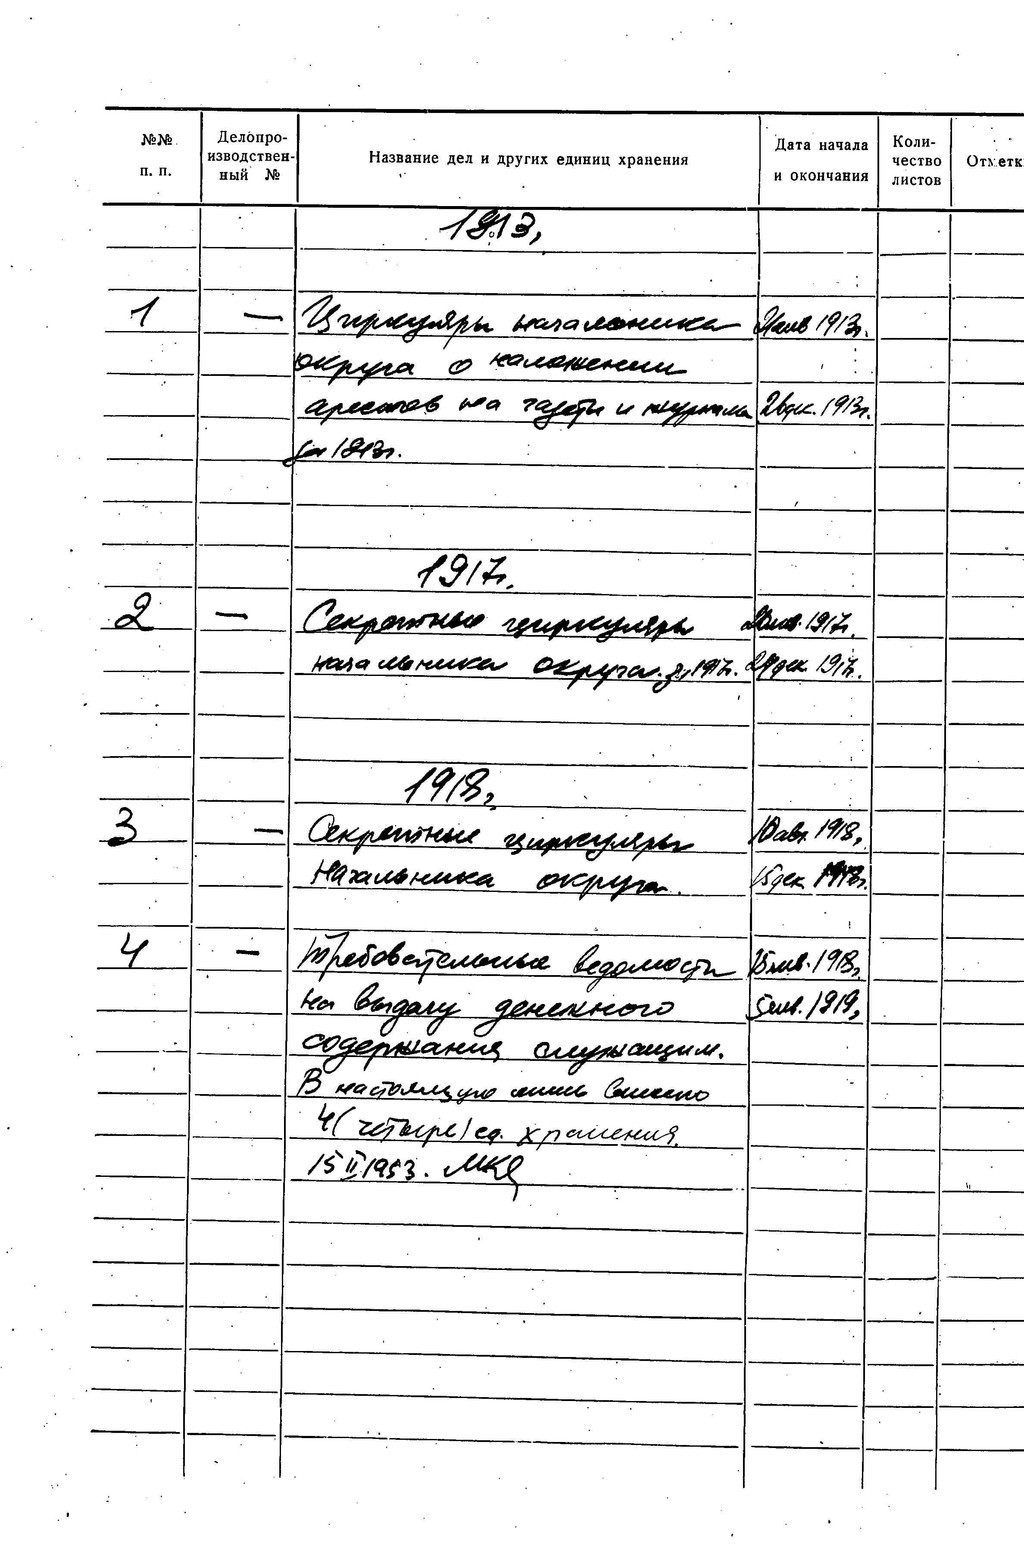 №№ п. п.
Делопро-
изводствен-
ный №
Название дел и других единиц хранения
Дата начала
и окончания
Коли-
чество
листов
Отметк
1913г
1 — Циркуляры начальника
округа о наложении
арестов на газеты и журналы
за 1913г.
янв 1913г.
дек. 1913г.
1917г.
2 — Секретные циркуляры
начальника округа за 1917г.
янв. 1917г.
29 дек 1917г.
1918г
3 — Секретные циркуляры
начальника округа.
10 авг. 1918г
15 дек 1918г.
4 — Требовательные ведомости
на выдачу денежного
содержания служащим.
15 янв. 1918г
5 янв. 1919г
В настоящую опись внесено
4 (четыре) ед. хранения
15 II 1953.